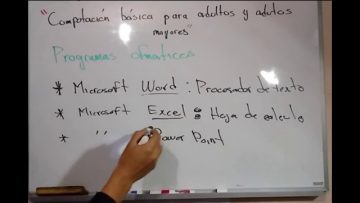 "Computación básica para adultos y adultos
mayores"
Programas ofimaticos
* Microsoft Word : Procesador de texto
* Microsoft Excel : Hoja de calculo
* " Power Point